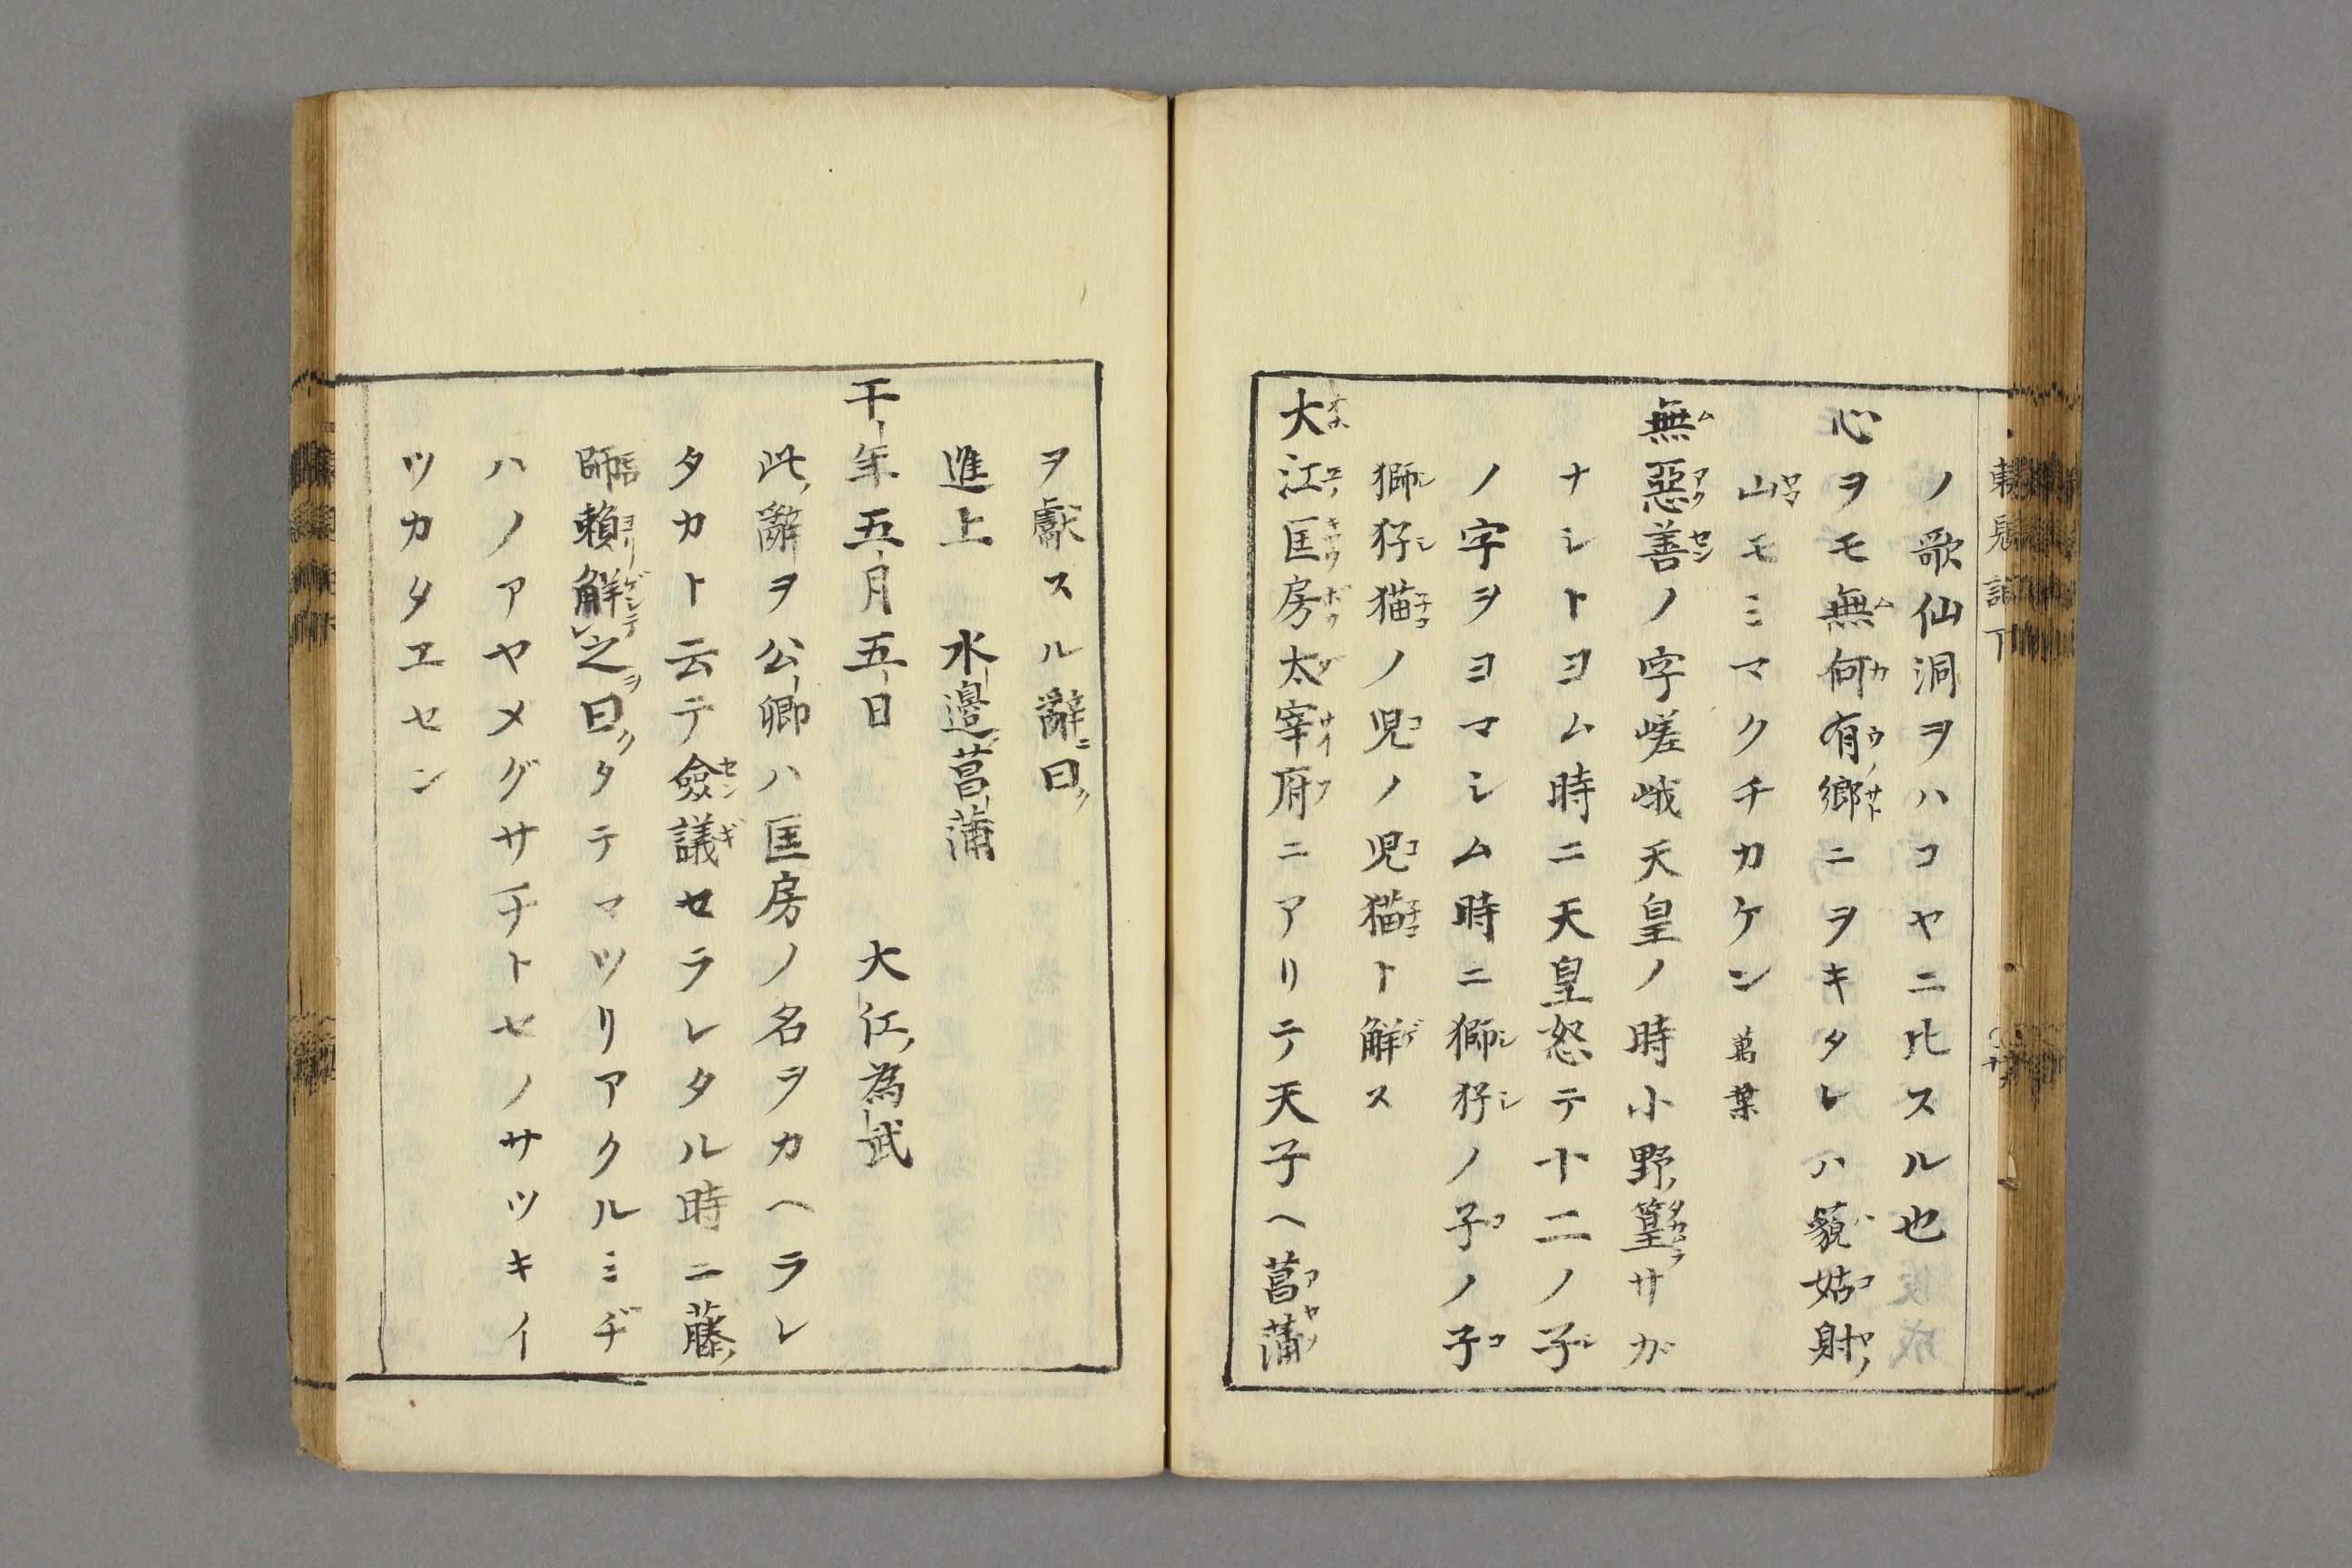 ノ歌仙洞ヲハコヤニ比スル也
心ヲモ無何有郷ニヲキタレハ藐姑射
山モミマクチカケン 萬葉
無惡善ノ字嵯峨天皇ノ時小野篁サガ
ナシトヨム時ニ天皇怒テ十二ノ子
ノ字ヲヨマシム時ニ獅㹨ノ子ノ子
獅㹨猫ノ児ノ児猫ト觧ス
大江匡房太宰府ニアリテ天子ヘ菖蒲
ヲ獻スル辭ニ曰ク
進上 水邉菖蒲
干年五月五日 大江為武
此辭ヲ公卿ハ匡房ノ名ヲカヘラレ
タカト云テ僉議セラレタル時ニ藤
師頼觧之曰クタテマツリアクルミギ
ハノアヤメグサチトセノサツキイ
ツカタヱセン